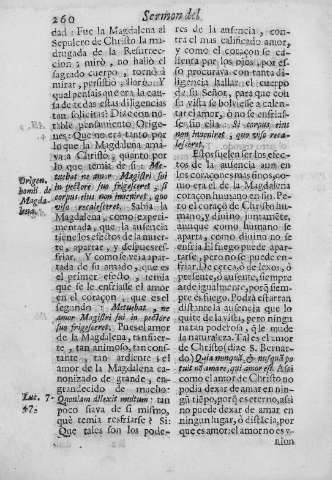 260
Sermon del
dad: Fue la Magdalena al
Sepulcro de Christo la ma-
drugada de la Resurrec-
cion; mirò, no hallò el
sagrado cuerpo, tornò à
mirar, persistiò, llorò. Y
qual pensais que era la cau-
sa de todas estas diligencias
tan solicitas? Dize con no-
table pensamiento Orige-
nes: Que no era tanto por
lo que la Magdalena ama-
va à Christo, quanto por
lo que temia de si: Me-
tuebat ne amor Magistri sui
in pectore suo frigesceret, si
corpus eius non inveniret, quo
viso recalesceret. Sabia la
Magdalena, como experi-
mentada, que la ausencia
tiene los efectos de la muer-
te, apartar, y despues res-
friar. Y como se veia apar-
tada de su amado, que es
el primer efecto, temia
que se le enfriasse el amor
en el coraçon, que es el
segundo: Metuebat, ne
amor Magistri sui in pectore
suo frigesceret. Pues el amor
de la Magdalena, tan fuer-
te, tan animoso, tan cons-
tante, tan ardiente; el
amor de la Magdalena ca-
nonizado de grande, en-
grandecido de mucho:
Quoniam dilexit multum: tan
poco fiava de si mismo,
que temia resfriarse? Si:
Que tales son los pode-
Origen.
homil. de
Magda-
lena.
Luc. 7.
47.
res de la ausencia, con-
tra el mas calificado amor,
y como el coraçon se ca-
lienta por los ojos, por es-
so procurava con tanta di-
ligencia hallar el cuerpo
de su Señor, para que con
su vista se bolviesse à calen-
tar el amor, ò no se enfrias-
se sin ella: Si corpus eius
non inveniret, quo viso reca-
lesceret.
Estos suelen ser los efec-
tos de la ausencia aun en
los coraçones mas finos, co-
mo era el de la Magdalena
coraçon humano en fin. Pe-
ro el coraçon de Christo hu-
mano, y divino juntamēte,
aunque como humano se
aparta, como divino no se
enfria. El fuego puede apar-
tarse, pero no se puede en-
friar. He cerca, ò de lexos, ò
presente, ò ausente, siempre
arde igualmente, porq̃ siem-
pre es fuego. Podrà estar tan
distante la ausencia que lo
quite de la vista, pero ningu-
na tan poderosa, q̃ le mude
la naturaleza. Tal es el amor
de Christo (dize S. Bernar-
do) Quia nunquã, & nusquã po
tuit nõ amare, qui amor est. Assi
como el amor de Christo no
podia dexar de amar en nin-
gũ tiẽpo, porq̃ es eterno, assi
no puede dexar de amar en
ningun lugar, ò distãcia, por
que es amor: el amor no es v-
nion